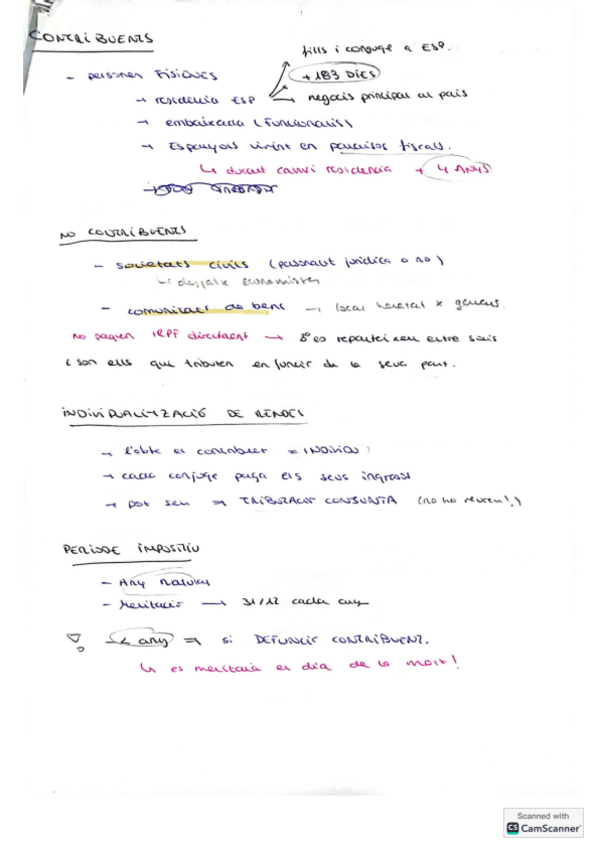 CONTRIBUENTS
- persones FISIQUES
fills i conjuge a ESP.
+ 183 DIES
→ residencia ESP → negocis principal al país
→ embaixada (Funcionaris)
→ Espanyols vivint en paraisos fiscals.
↳ durant canvi residencia + 4 ANYS
NO CONTRIBUENTS
- societats civils (personalitat jurídica o no)
↳ despatx economistes
- comunitats de bens → local heretat x germans.
no paguen IRPF directament → Bº es reparteixen entre socis
(son ells qui tributen en funció de la seva part.
INDIVIDUALITZACIÓ DE RENDES
→ l'obté el contribuent = INDIVIDU
→ cada conjuge paga els seus ingressos
→ pot ser → TRIBUTACIÓ CONJUNTA (no ho veurem!)
PERIODE IMPOSITIU
- Any natural
- Meritació → 31/12 cada any
< any ⇒ si DEFUNCIÓ CONTRIBUENT.
↳ es meritarà el dia de la mort!
Scanned with
CS CamScanner